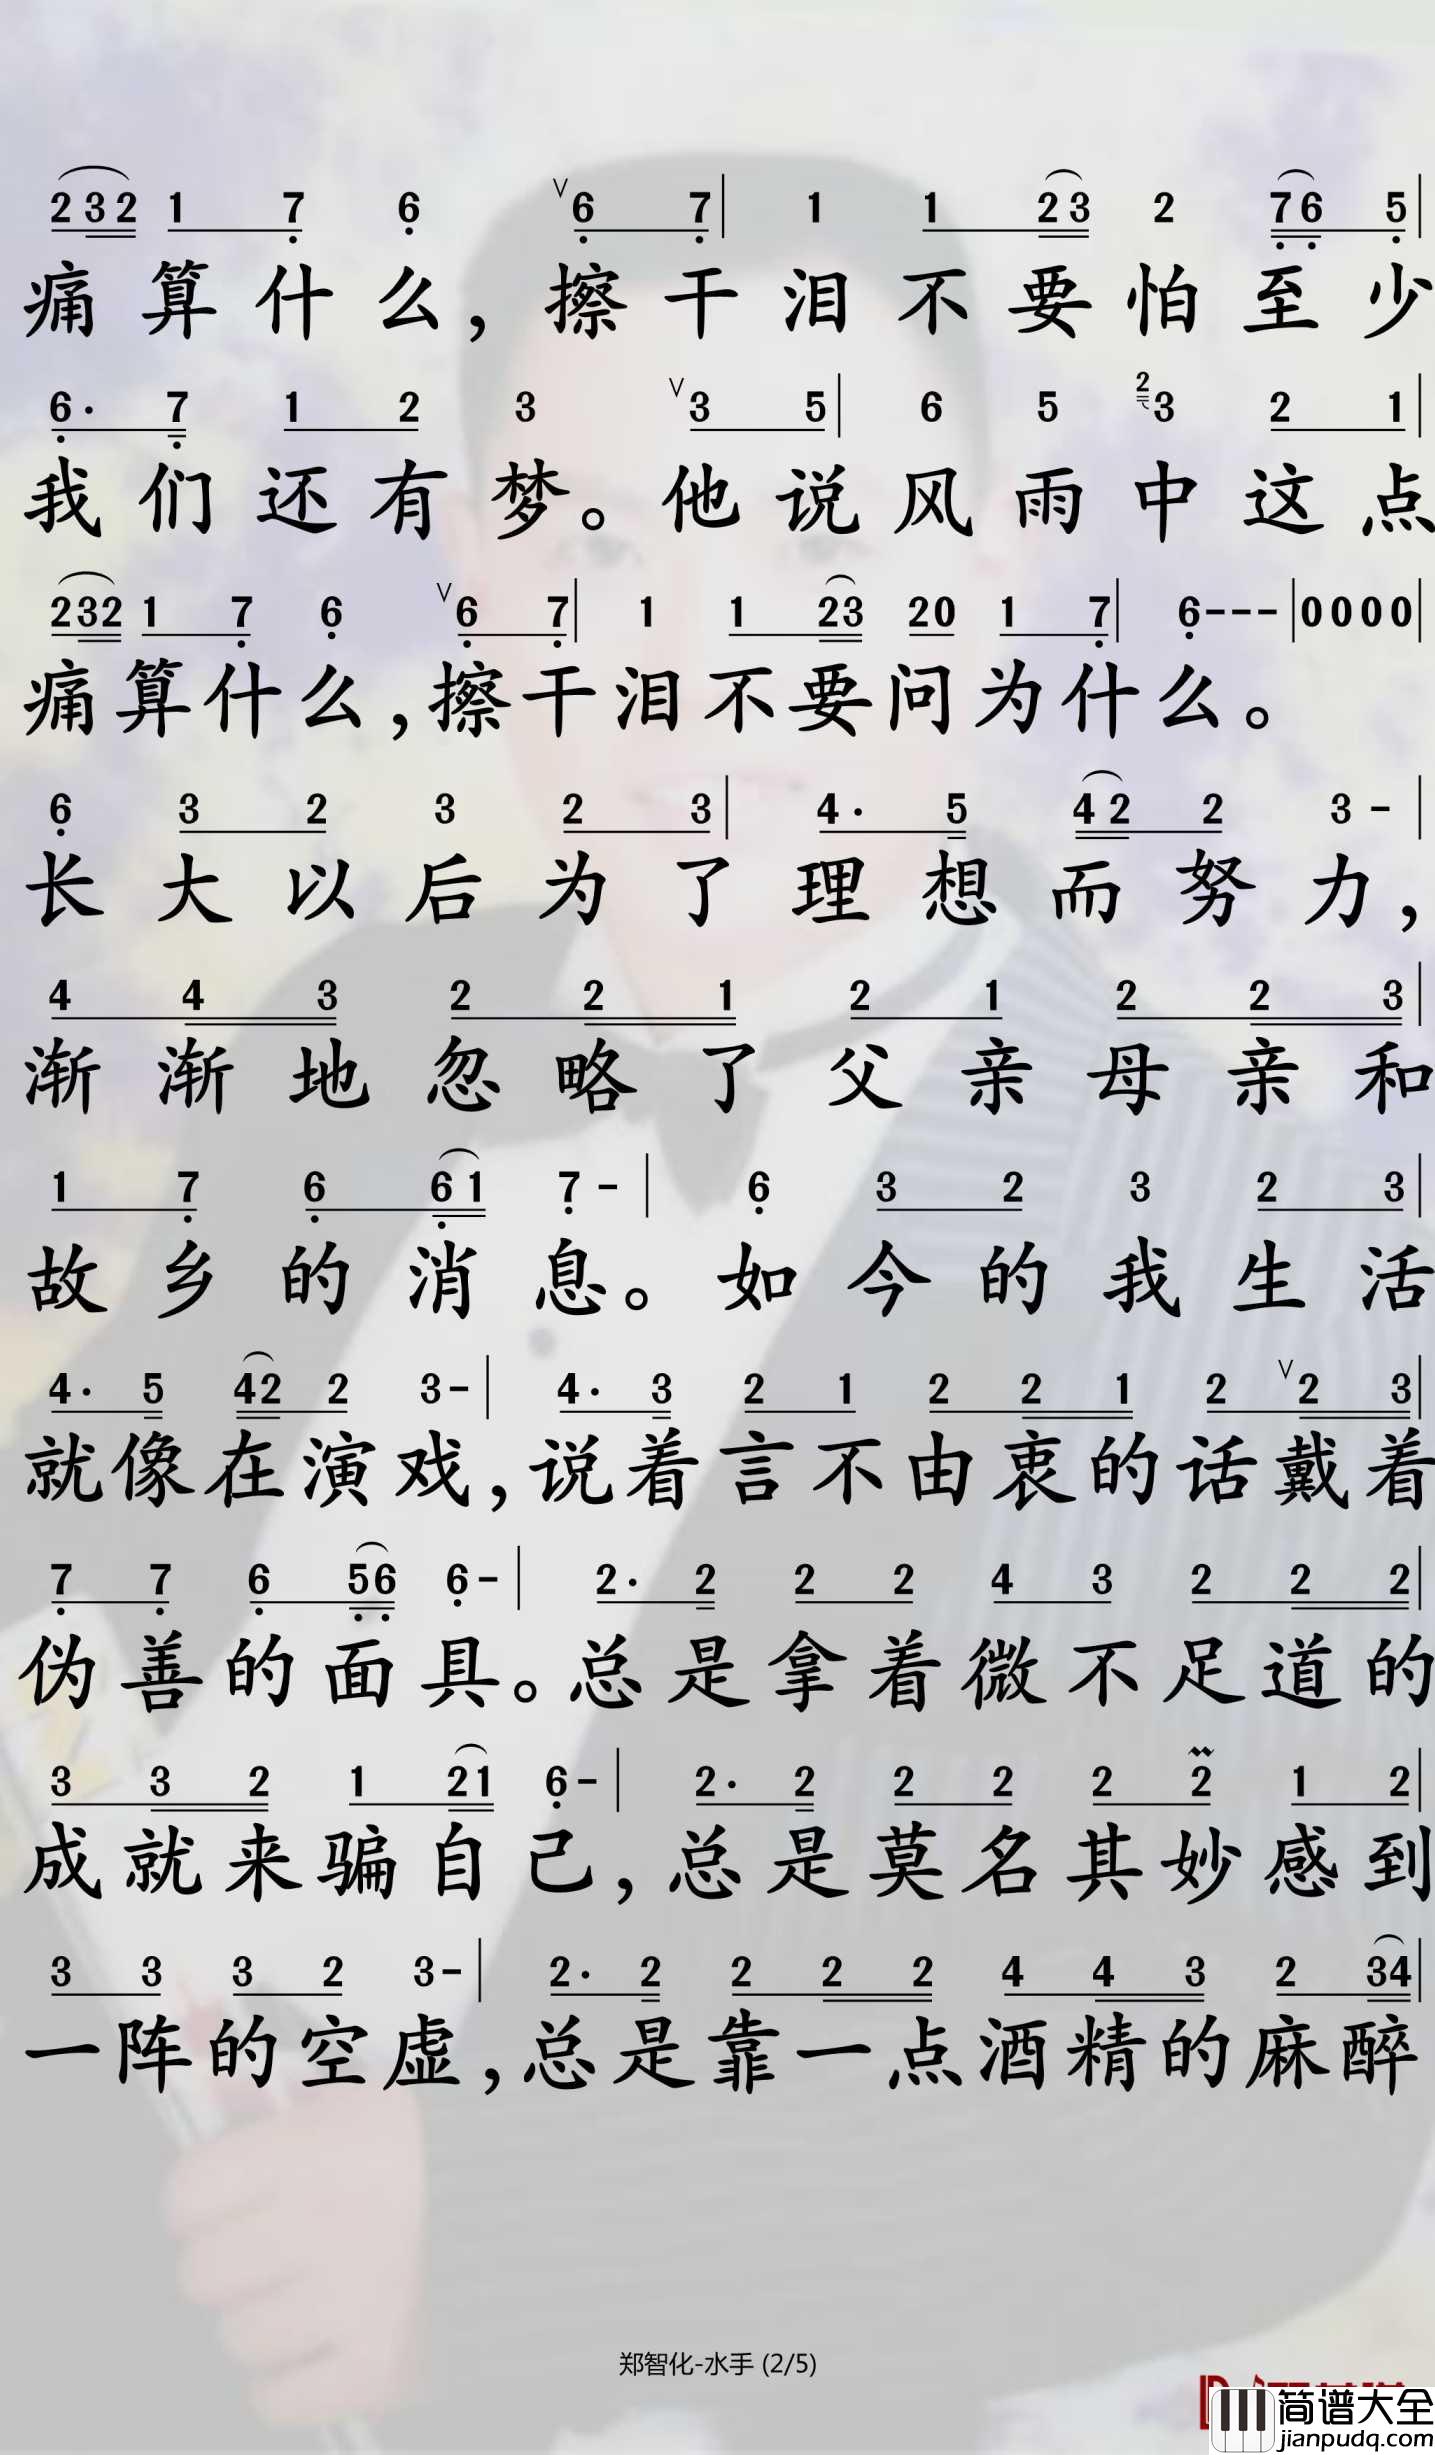 2 3 2 1 7 6 ∨6 7 | 1 1 2 3 2 7 6 5 |
痛算什么，擦干泪不要怕至少
6· 7 1 2 3 ∨3 5 | 6 5 2 3 2 1 |
我们还有梦。他说风雨中这点
2 3 2 1 7 6 ∨6 7 | 1 1 2 3 2 0 1 7 | 6 - - - | 0 0 0 0 |
痛算什么，擦干泪不要问为什么。
6 3 2 3 2 3 | 4· 5 4 2 2 3 - |
长大以后为了理想而努力，
4 4 3 2 2 1 2 1 2 2 3 |
渐渐地忽略了父亲母亲和
1 7 6 6 1 7 - | 6 3 2 3 2 3 |
故乡的消息。如今的我生活
4· 5 4 2 2 3 - | 4· 3 2 1 2 2 1 2 ∨2 3 |
就像在演戏，说着言不由衷的话戴着
7 7 6 5 6 6 - | 2· 2 2 2 4 3 2 2 2 |
伪善的面具。总是拿着微不足道的
3 3 2 1 2 1 6 - | 2· 2 2 2 2 2 1 2 |
成就来骗自己，总是莫名其妙感到
3 3 3 2 3 - | 2· 2 2 2 2 4 4 3 2 3 4 |
一阵的空虚，总是靠一点酒精的麻醉
郑智化-水手 (2/5)
简谱大全
jianpudq.com